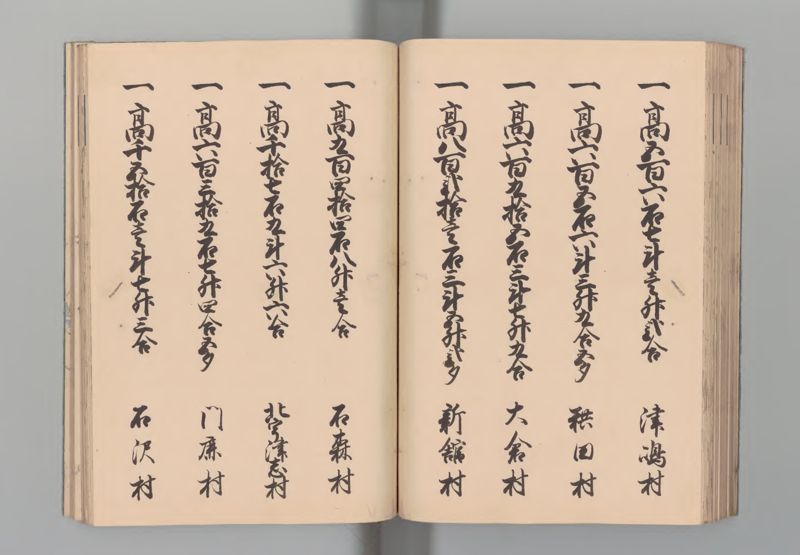 一高五百六石七斗壱升弐合 津嶋村
一高六百五石六斗三升九合五夕 糠田村
一高六百九拾五石三斗七升九合 大倉村
一高八百弐拾壱石三斗五升弐夕 新舘村
一高九百四拾四石八升壱合 石森村
一高千拾七石九斗六升六合 北宇津志村
一高六百三拾九石七升四合五夕 門鹿村
一高千五拾石壱斗七升三合 石沢村